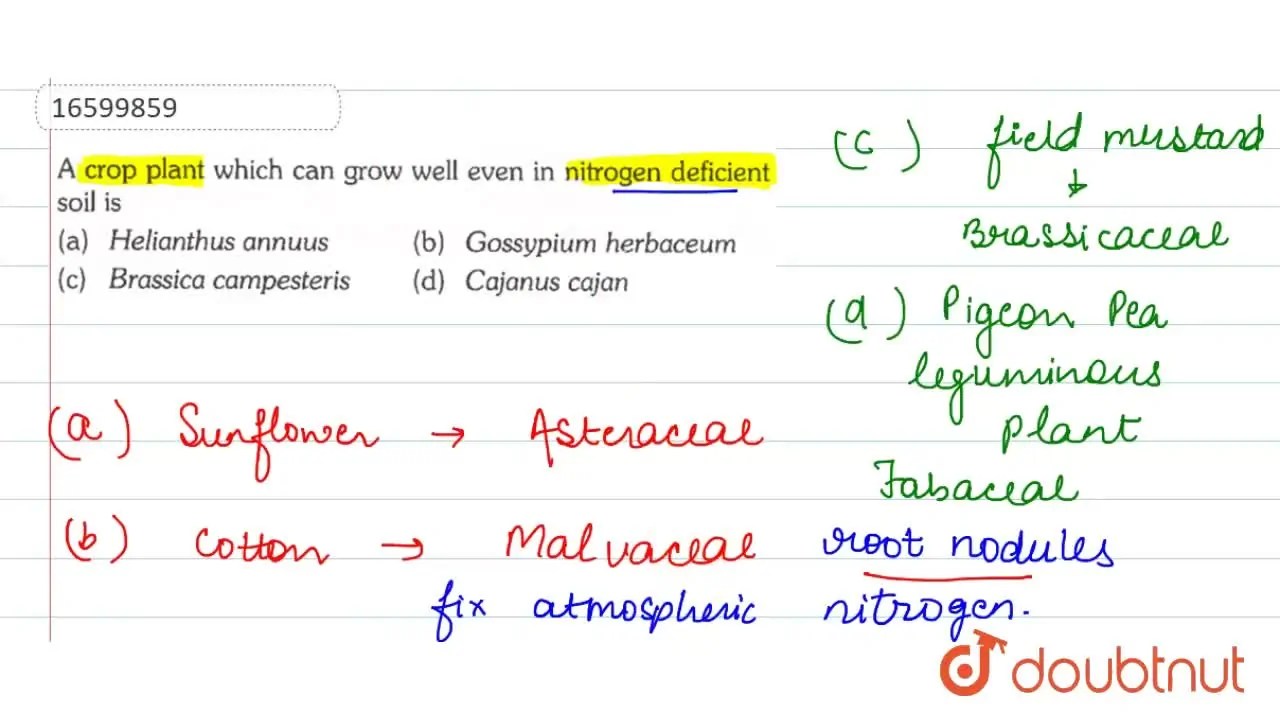 16599859
A crop plant which can grow well even in nitrogen deficient
soil is
(a) Helianthus annuus (b) Gossypium herbaceum
(c) Brassica campesteris (d) Cajanus cajan
(c) field mustard
Brassicaceae
(d) Pigeon Pea
leguminous
plant
Fabaceae
(a) Sunflower → Asteraceae
(b) Cotton → Malvaceae
root nodules
fix atmospheric nitrogen.
doubtnut